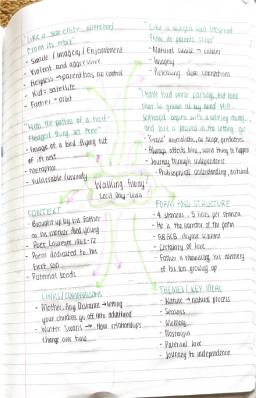 "Like a satellite wrenched
from its orbit"
- Simile / Imagery / Enjambment
- Violent and aggressive
- Helpless → parent has no control
- Kid = satellite
- Father = orbit
"With the pathos of a half-
fledged thing set free"
- Image of a bird flying out
of its nest
- metaphor
- Vulnerable / unready
"Like a winged seed loosened
from its parent stem"
- Natural simile
- Imagery
- connotations
"I have had worse partings, but none
that so gnaws at my mind still...
selfhood begins with a walking away,
and love is proved in the letting go
- Journey through independence
- Philosophical understanding, natural
Walking Away
Cecil Day-Lewis
CONTEXT
- Brought up by his father
as his mother died young
- Poet Laureate 1968-72
- Poem dedicated to his
first son
- Paternal bonds
FORM AND STRUCTURE
- 4 stanzas, 5 lines per stanza
- He is the narrator of the poem
- ABACA rhyme scheme
- Certainty of love
- Father is showing his memory
of his son growing up
LINKS / COMPARISONS
- Mother, Any Distance → letting
your children go off into adulthood
- Winter Swans → How relationships
change over time
THEMES / KEY IDEAS
- Nature → natural process
- Seasons
- Memory
- Nostalgia
- Paternal love
- Journey to independence